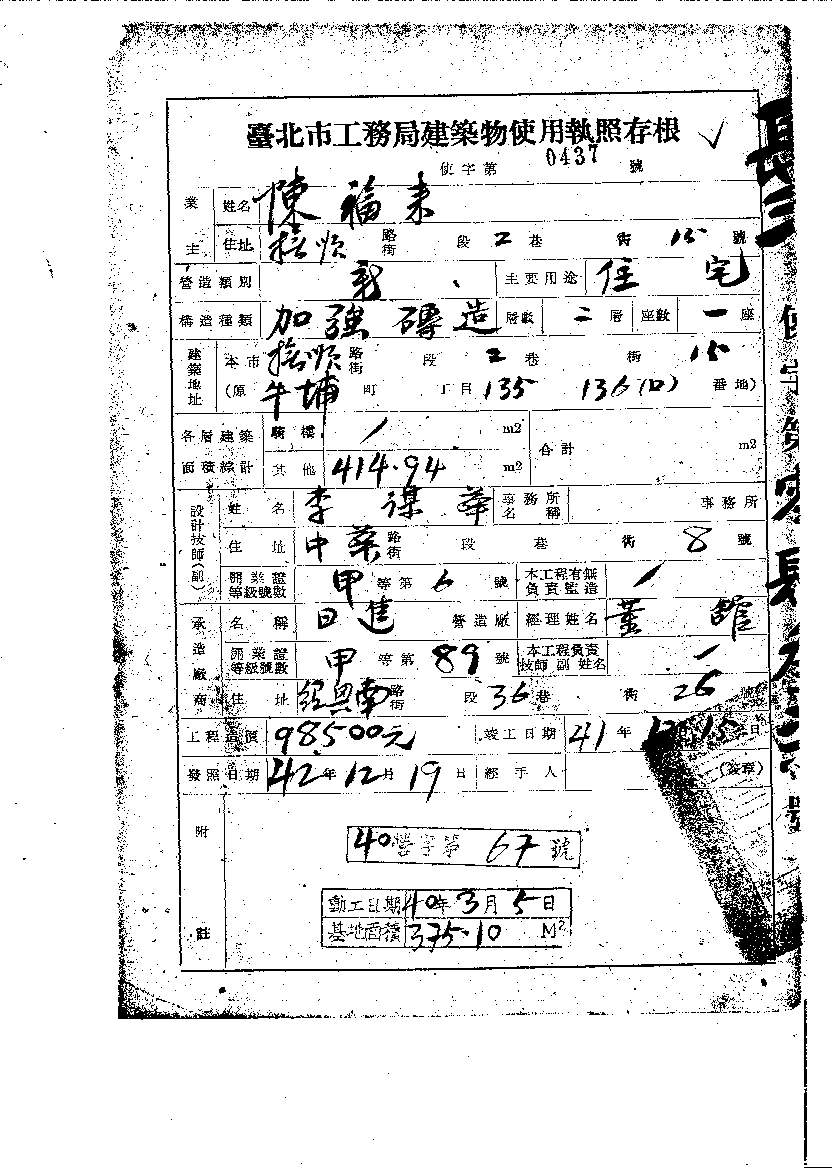 臺北市工務局建築物使用執照存根
使字第 0437 號
業主 姓名 陳福来
住址 撫順 路街 段 2 巷 街 15 號
營造類別 新 主要用途 住宅
構造種類 加強磚造 層數 二 層 座數 一 座
建築地址 本市 撫順 路街 段 2 巷 街 15
(原 牛埔 町 丁目 135 136(口) 番地)
各層建築面積總計 騎樓 / m2 合計 m2
其他 414.94 m2
設計技師(副) 姓名 李 華 事務所名稱 事務所
住址 中華 路街 段 巷 街 8 號
開業證等級號數 甲 等第 6 號 本工程有無負責監造 /
承造廠商 名稱 日進 營造廠 經理姓名 董
開業證等級號數 甲 等第 89 號 本工程負責技師副姓名 /
住址 南 路街 段 36 巷 街 26 號
工程造價 98500元 竣工日期 41 年 12 15 日
發照日期 42 年 12 月 19 日 經手人 (簽章)
附註
40 營字第 67 號
動工日期 40年 3月 5日
基地面積 375.10 M²